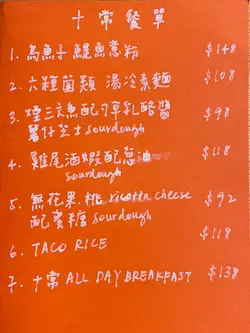 十常餐單
1. 烏魚子 鯷魚意粉 $148
2. 六種菌類 湯冷素麵 $108
3. 煙三文魚配刁草乳酪醬 $98
薯仔芝士 sourdough
4. 雞尾酒蝦配葱油 $118
sourdough
5. 無花果.桃 ricotta cheese $92
配蜜糖 sourdough
6. TACO RICE $118
7. 十常 ALL DAY BREAKFAST $138